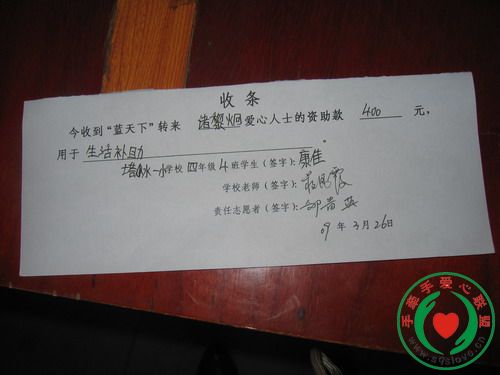 收条
今收到“蓝天下”转来 诸黎炯 爱心人士的资助款 400 元,
用于 生活补助 。
水一小学校 四年级 4 班学生(签字): 康佳
学校老师(签字):
责任志愿者(签字): 邹青英
09 年 3 月 26 日
手牵手爱心联盟
www.sqslove.cn